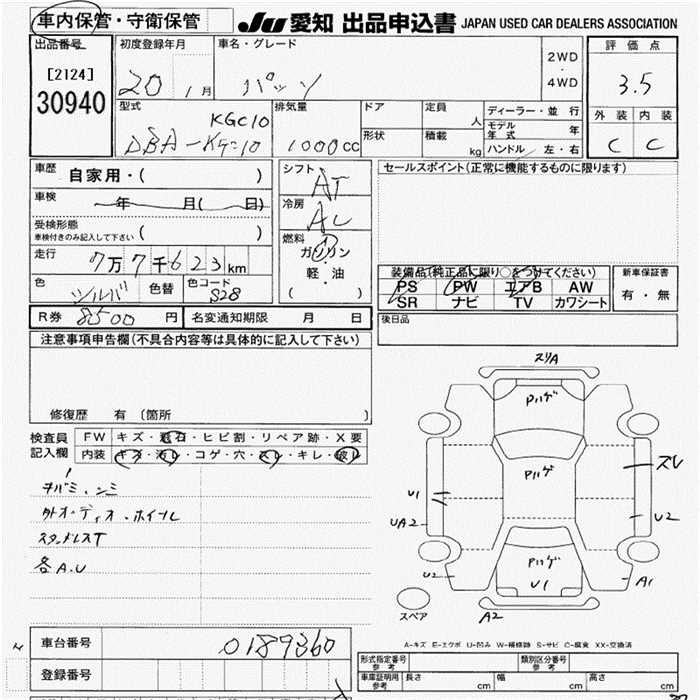 車内保管・守衛保管 JU 愛知 出品申込書 JAPAN USED CAR DEALERS ASSOCIATION
出品番号 初度登録年月 車名・グレード 評価点
[2124]
30940
20 1月 パッソ
2WD
・
4WD
3.5
型式 KGC10 排気量 ドア 定員 人 ディーラー・並行 外装 内装
DBA-KGC10 1000cc 形状 積載 kg モデル年式 年
ハンドル 左・右 C C
車歴 自家用・( ) シフト AT セールスポイント(正常に機能するものに限ります)
車検 年 月( 日) 冷房 AC
受検形態
車検付きのみ記入して下さい ( ) 燃料 ガソリン
走行 7万7千623km 軽・油
( )
装備品(純正品に限り○をつけてください) 新車保証書
色 シルバ 色替 色コード S28 PS PW エアB AW 有・無
SR ナビ TV カワシート
R券 8500円 名変通知期限 月 日 後日品
注意事項申告欄(不具合内容等は具体的に記入して下さい)
修復歴 有(箇所 )
検査員記入欄 FW キズ・飛石・ヒビ割・リペア跡・X要
内装 キズ・汚レ・コゲ・穴・スレ・キレ・破レ
外オーディオ・ホイール
スタッドレスT
各A.U
スリA
Pハゲ
Pハゲ
スレ
U1
UA2
U2
Pハゲ
U1
U2
A1
A2
スペア
A-キズ E-エクボ U-凹み W-補修跡 S-サビ C-腐食 XX-交換済
車台番号 0189360
登録番号
形式指定番号 参考 類別区分番号 参考
車庫証明用 参考 長さ cm 幅 cm 高さ cm